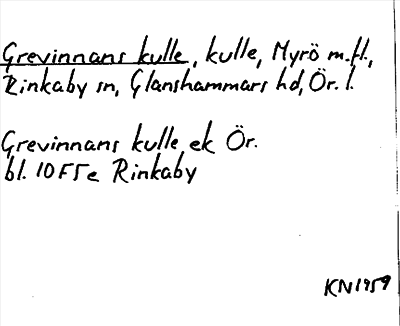 Grevinnans kulle, kulle, Myrö m.fl.,
Rinkaby sn, Glanshammars hd, Ör. l.
Grevinnans kulle ek Ör.
bl. 10F5e Rinkaby
KN1959